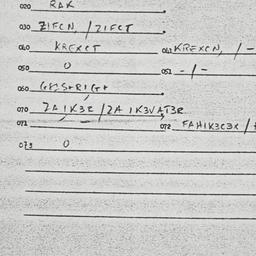 020 RAK
030 ZIFCN, / ZIFCT
040 KREXCT 041 KREXCN, / -
050 0 051 - / -
060
070 ZAIK3E / ZA IK3VAT3R
071 072 FAHIK3C3R /
073 0